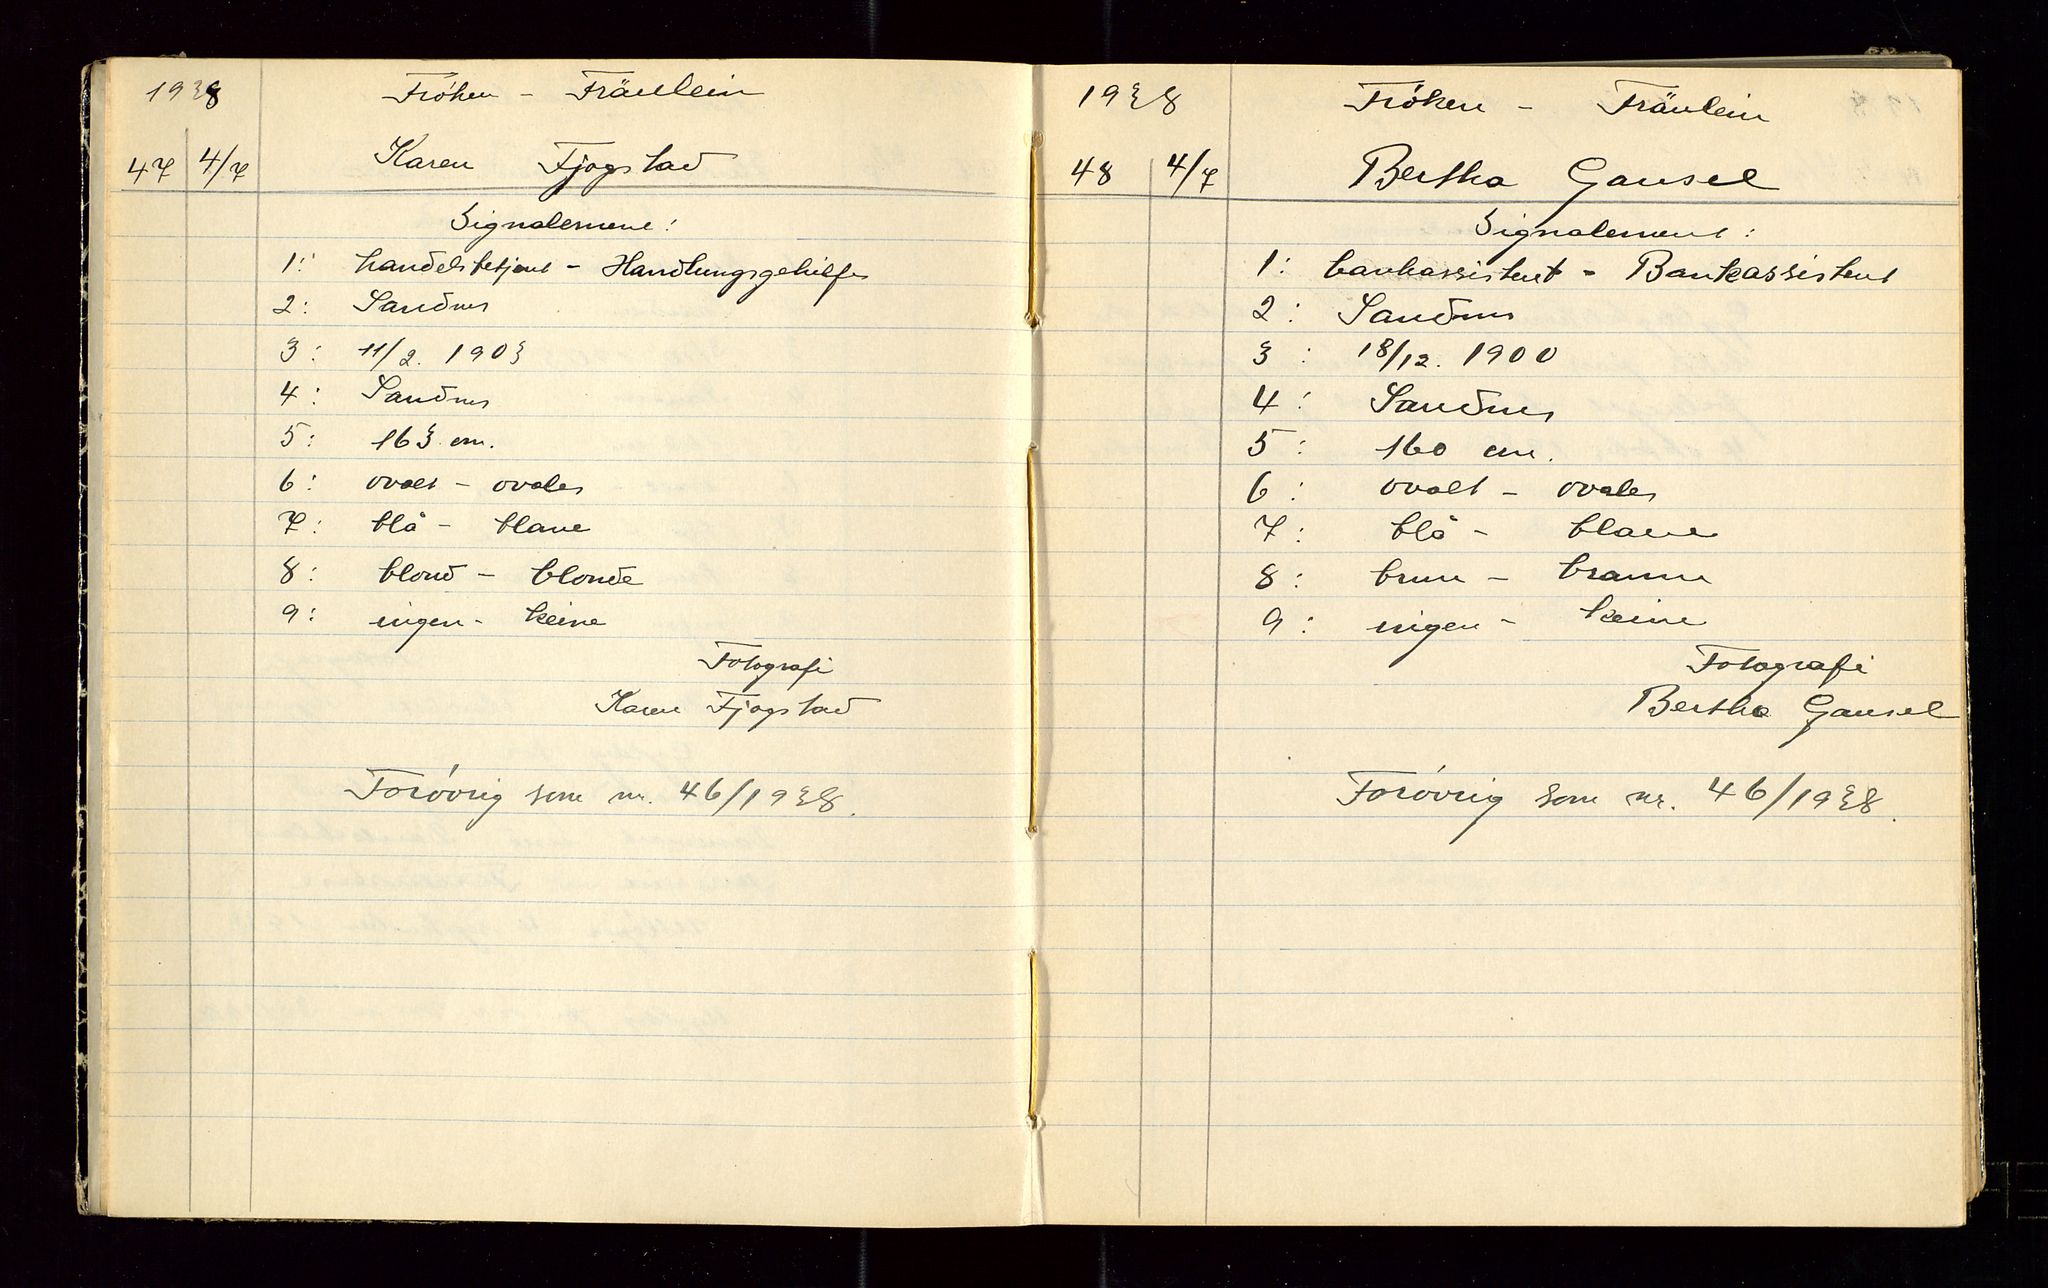 1938 Frøken - Fräulein
47 4/7 Karen Fjogstad
Signalement:
1: handelsbetjent - Handlungsgehilfe
2: Sandnes
3: 11/2. 1903
4: Sandnes
5: 163 cm.
6: ovalt - ovales
7: blå - blaue
8: blond - blonde
9: ingen - keine
Fotografi
Karen Fjogstad
Forøvrig som nr. 46/1938.
1938 Frøken - Fräulein
48 4/7 Bertha Gausel
Signalement:
1: bankassistent - Bankassistent
2: Sandnes
3: 18/12. 1900
4: Sandnes
5: 160 cm.
6: ovalt - ovales
7: blå - blaue
8: brun - braune
9: ingen - keine
Fotografi
Bertha Gausel
Forøvrig som nr. 46/1938.